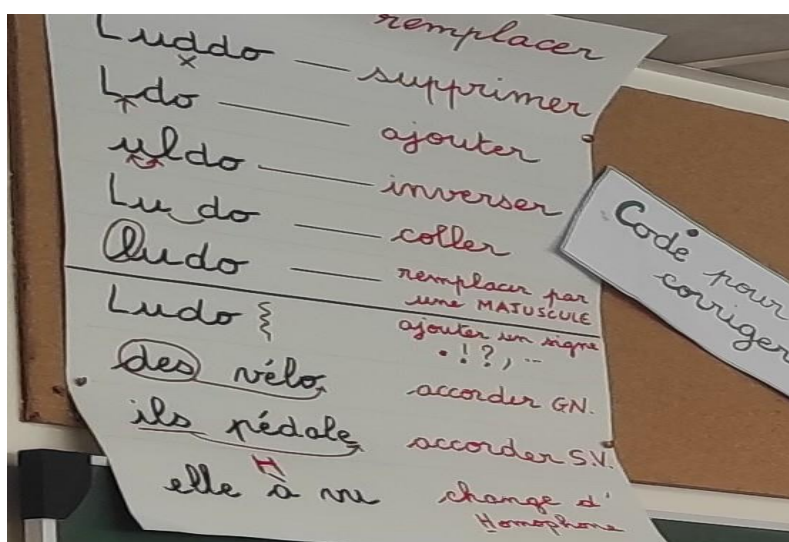 remplacer
Luddo — supprimer
Ldo — ajouter
uldo — inverser
Lu do — coller
ludo — remplacer par
une MAJUSCULE
Ludo ajouter un signe
. ! ? , ...
des vélo accorder GN.
ils pédale accorder S.V.
H
elle à vu change d'
Homophone
Code pour
corriger